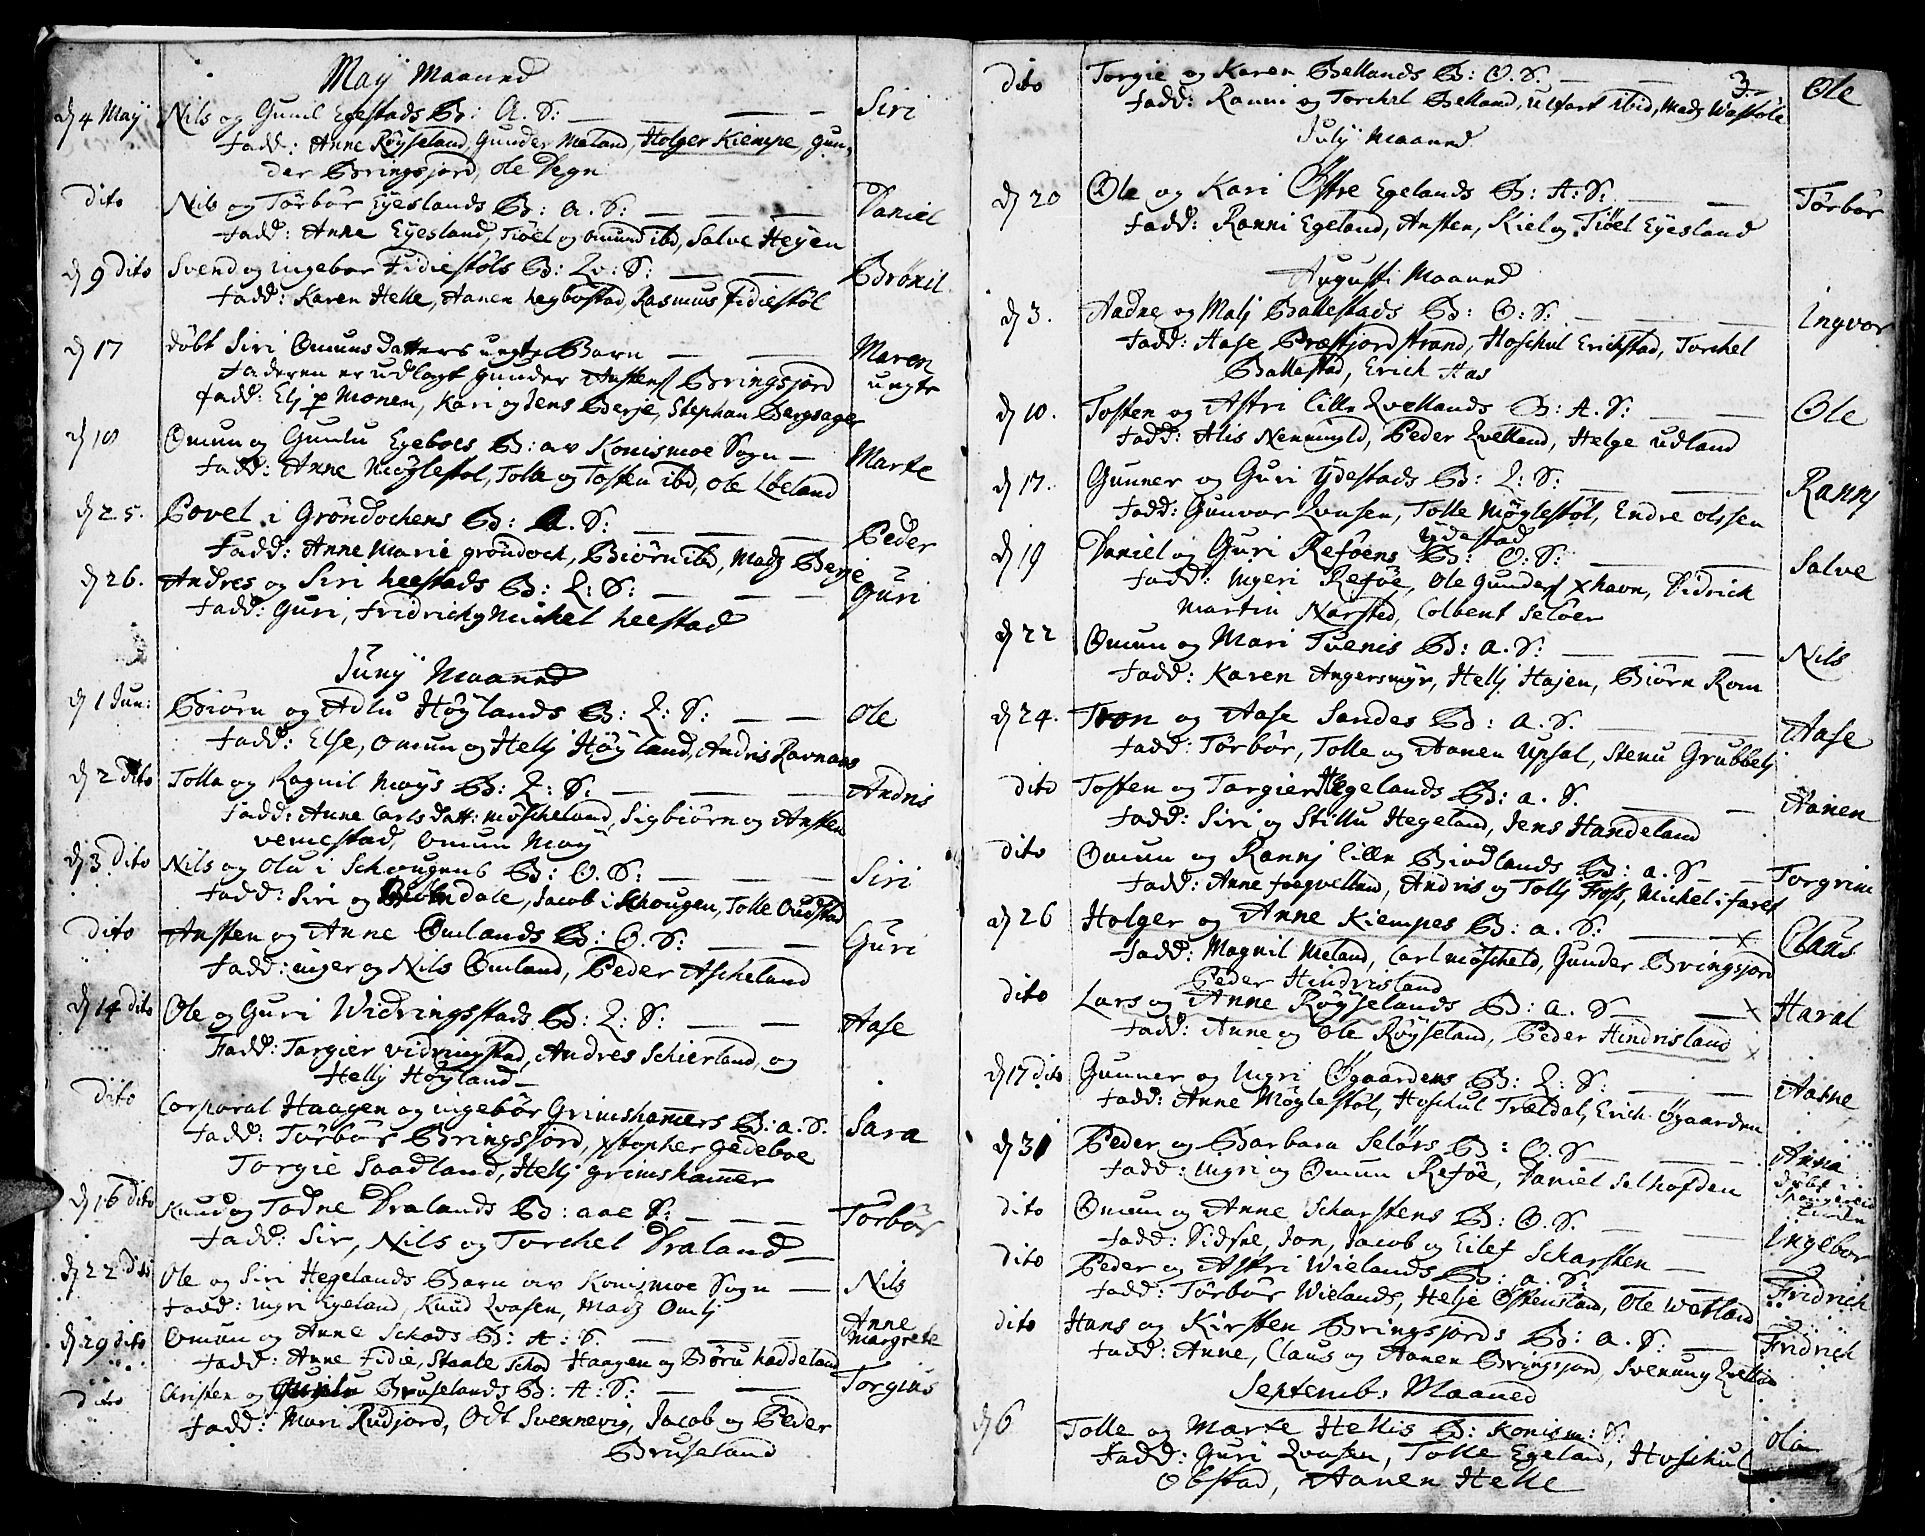 Maij Maaned
d 4 Maij Nils og Gunil Egestads B: A. S: Siri
Fadd: Anne Røÿseland, Gunder Meland, Holger Kiempe, Gun,
der Bringsjord, Ole Degn
Dito Nils og Tørbør Eÿeslands B: A. S: Daniel
Fadd: Anne Eÿesland, Tiøel og Omund ibd, Salve Heÿen
d 9 dito Svend og Ingebor Fidiestøls B: Qv: S: Brønil
Fadd: Karen Helle, Aanen hegbostad, Rasmus Fidiestøl
d 17 døbt Siri Omunsdatters uegte Barn Maren
Faderen er udlagt Gunder Anstens Bringsjord uegte
Fadd: Elj p Monen, Kari og Jens Berje, Stephan Bergsager
d 18 Omun og Gunlu Egeboes B: av Konismoe Sogn Marte
Fadd: Anne Møglestøl, Tolle og Tosten ibd, Ole Løeland
d 25. Povel i Grøndochens B: A. S: Peder
Fadd: Anne Marie grøndoch, Biørn ibd, Madz Berje
d 26. Andres og Siri heestads B: L: S: Guri
Fadd: Guri, Fridrich og Michel heestad
Junij Maaned
d 1 Jun: Biørn og Adlu Høÿlands B: L: S: Ole
Fadd: Else, Omun og Hellj Høÿland, Andris Ravnaas
d 2 dito Tolle og Ragnil Moÿs B: L: S: Andris
Fadd: Anne Carls datt: møscheland, Sigbiørn og Ansten
vemestad, Omun Moÿ
d 3 dito Nils og Olu i Schougens B: O. S: Siri
Fadd: Siri og dale, Jacob i Schougen, Tolle Oudstad
dito Ansten og Anne Omlands B: O. S: Guri
Fadd: inger og Nils Omland, Peder Ascheland
d 14 dito Ole og Guri Widringsstads B: L: S: Aase
Fadd: Targier vidringstad, Andres Schierland, og
Hellj Høÿland
dito Corporal Haagen og ingebør Grimshamers B: a. S. Sara
Fadd: Tørbør Bringsjord, xstopher Gedeboe
Torgie Saadland, Hellj grimshamer
d 16 dito Knud og Todne Dralands B: aae S: Tørbør
Fadd: Sir, Nils og Torchel Draland
d 22 dito Ole og Siri Hegelands Barn av Konismoe Sogn Nils
Fadd: Ingri Egeland, Knud Qvasen, Madz Omlj
d 29 dito Omun og Anne Schods B: A: S. Anne Margrete
Fadd: Anne Fidie, Staale Schod Haagen og Børu haddeland
dito Christen og Gunlu Bruselands B: A: S: Torgius
Fadd: Mari Rudjord, Odt Svennevig, Jacob og Peder
Bruseland
3.
dito Torgie og Karen Bellands B: O. S. Ole
Fadd: Ranni og Torchel Belland, ulfart ibid, Madz Wastøle
Julij Maaned
d 20 Ole og Kari Østre Egelands B: A: S: Tørbør
Fadd: Ranni Egeland, Ansten, Kiel og Tiøel Eÿesland
Augusti Maaned
d 3. Aadne og Malj Ballestads B: O: S: Ingvor
Fadd: Aase Præstjordstrand, Hoschul Erichstad, Torchel
Ballestad, Erich Aas
d 10. Tosten og Astri lille Qvellands B: A. S: Ole
Fadd: Alis Nenningld, Peder Qvelland, Helge udland
d 17. Gunner og Guri ÿdestads B: L: S: Rannj
Fadd: Gunvor Qvasen, Tolle Møglestøl, Endre olssen
ÿdestad
d 19 Daniel og Guri Reføens B: O: S: Salve
Fadd: Ingeri Reføe, Ole Gunders xhavn, Didrich
Martin Narsted, Colbent Seløer
d 22 Omun og Mari Tvenis B: a. S: Nils
Fadd: Karen Angersmÿr, Hellj Hajen, Biørn Rom
d 24. Tron og Aase Sandes B: a. S. Aase
Fadd: Tørbør, Tolle og Aanen Upsal, Stenu Grubbelj
dito Tosten og Targier Hegelands B: a. S. Aanen
Fadd: Siri og Stillu Hegeland, Jens Handeland
dito Omun og Rannj lille Biodlands B: a. S Torgrim
Fadd: Anne foegvelland, Andris og Tollj Foss, Michel i faret
d 26 Holger og Anne Kiempes B: a. S: x Claus
Fadd: Magnil Meland, Carl møscheld, Gunder Bringsjord
Peder Hindrisland
dito Lars og Anne Røÿselands B: a. S x Haral
Fadd: Anne og Ole Røÿseland, Peder Hindrisland x
d 17 dito Gunner og Ingri Øgaardens B: L: S: Aanne
Fadd: Anne Møglestøl, Hoschul Trældal, Erich Øgaarden
d 31 Peder og Barbara Seløes B: O. S Anna
Fadd: Ingri og Omun Reføe, Daniel Selhofden døbt i Spangereid
dito Omun og Anne Scharstens B: O. S. Ingebor
Fadd: Sidsele, Jon, Jacob og Eilef Scharsten
dito Peder og Astri Wielands B: a. S: Fridrich
Fadd: Tørbør Wielands, Helje Østensland, Ole Watland
dito Hans og Kirsten Bringsjords B: a. S. Fridrich
Fadd: Anne, Claus og Aanen Bringsjord, Svenung Qvelland
Septemb: Maaned
d 6 Tolle og Marte Hellis B: Konism: S: Ola
Fadd: Guri Qvasen, Tolle Egeland, Hoschul
Obstad, Aanen Helle